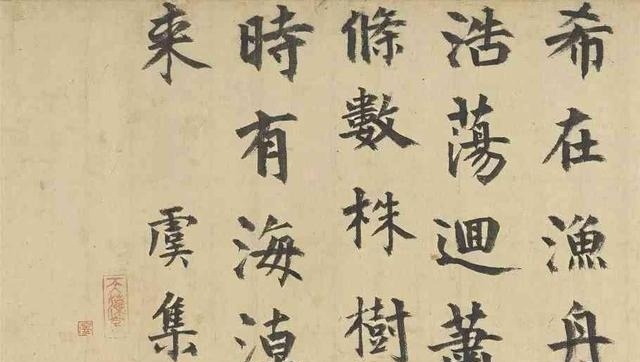 希在漁舟
浩蕩迴蕭
條數株樹
時有海
来 虞集